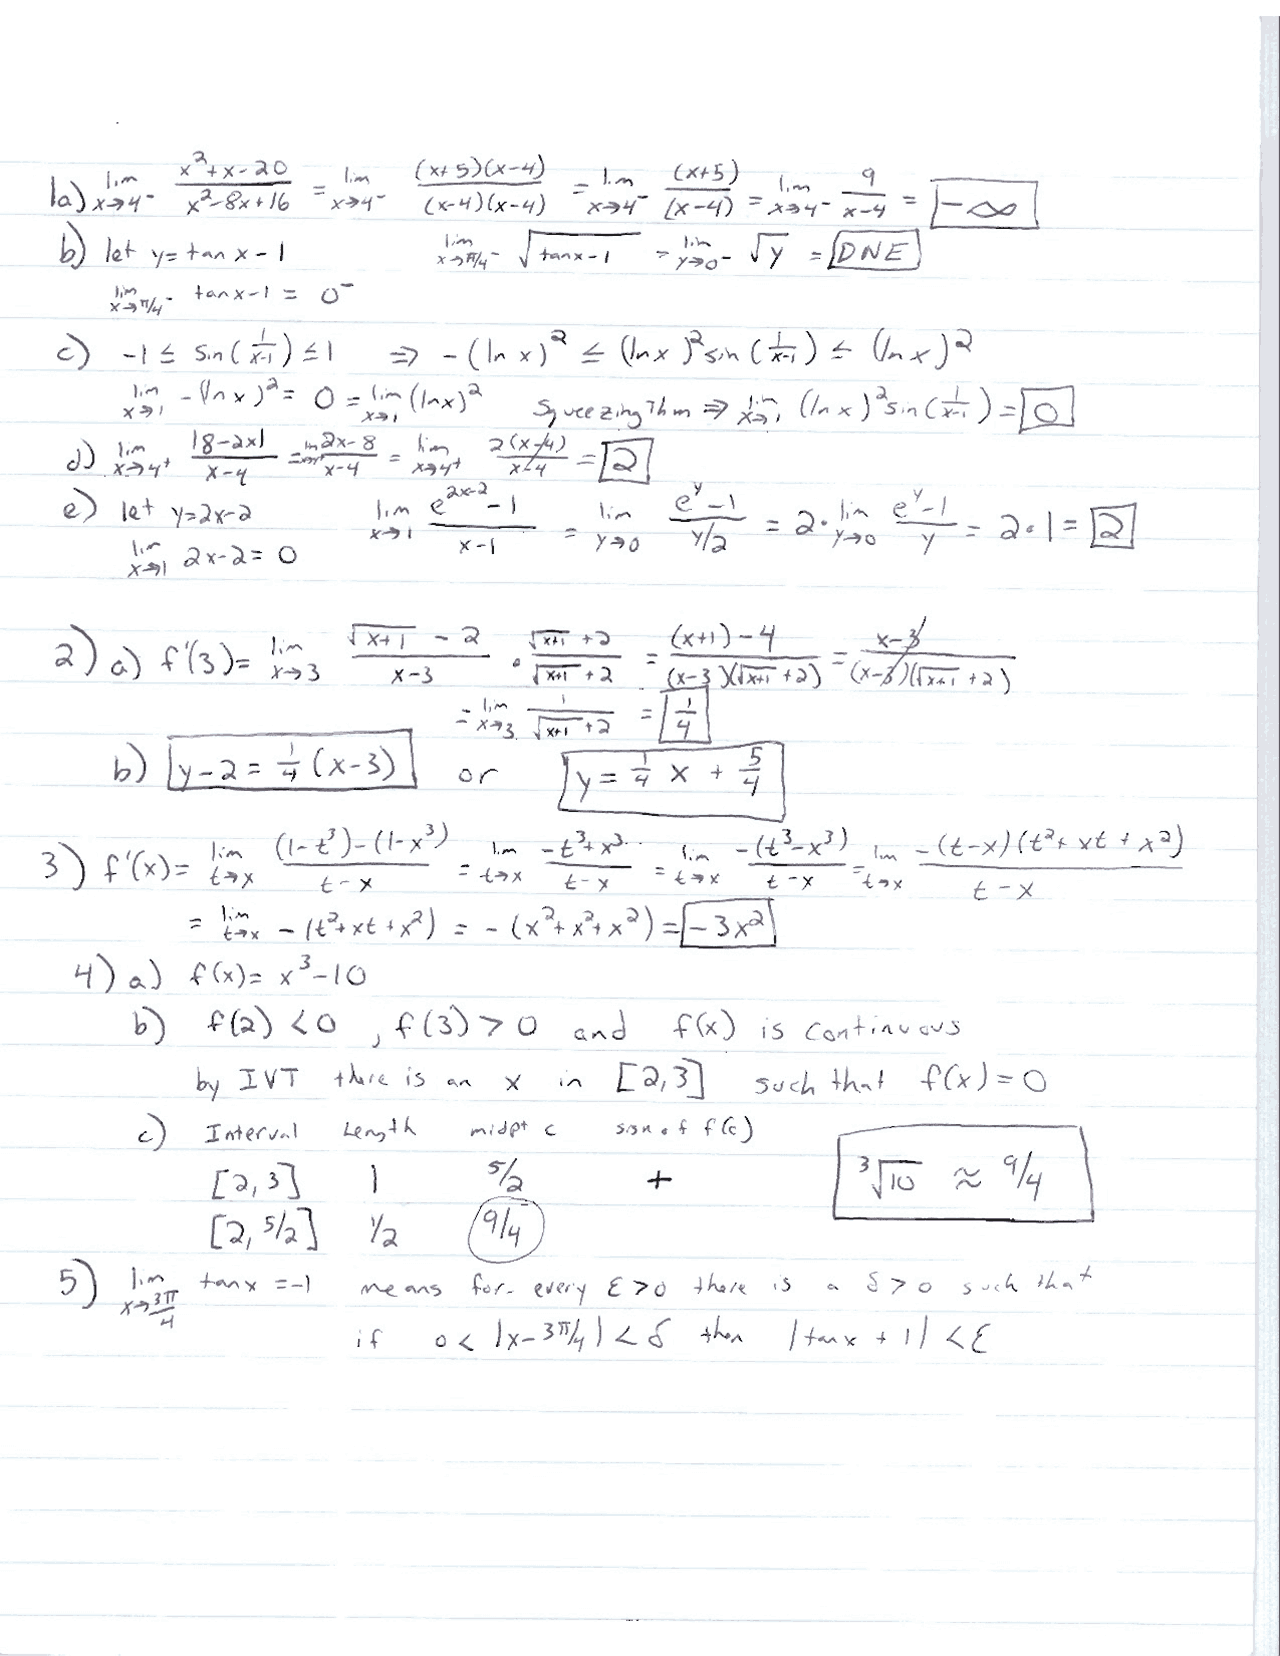 1a) lim x→4⁻ (x²+x-20)/(x²-8x+16) = lim x→4⁻ ((x+5)(x-4))/((x-4)(x-4)) = lim x→4⁻ (x+5)/(x-4) = lim x→4⁻ 9/(x-4) = -∞
b) let y = tan x - 1 lim x→π/4⁻ √(tan x-1) = lim y→0⁻ √y = DNE
lim x→π/4⁻ tan x-1 = 0⁻
c) -1 ≤ sin(1/(x-1)) ≤ 1 ⇒ -(ln x)² ≤ (ln x)² sin(1/(x-1)) ≤ (ln x)²
lim x→1 -(ln x)² = 0 = lim x→1 (ln x)² Squeezing Thm ⇒ lim x→1 (ln x)² sin(1/(x-1)) = 0
d) lim x→4⁺ |8-2x|/(x-4) = lim x→4⁺ (2x-8)/(x-4) = lim x→4⁺ 2(x-4)/(x-4) = 2
e) let y=2x-2 lim x→1 (e^(2x-2) - 1)/(x-1) = lim y→0 (e^y - 1)/(y/2) = 2·lim y→0 (e^y - 1)/y = 2·1 = 2
lim x→1 2x-2 = 0
2) a) f'(3) = lim x→3 (√(x+1) - 2)/(x-3) · (√(x+1) + 2)/(√(x+1) + 2) = ((x+1)-4)/((x-3)(√(x+1) + 2)) = (x-3)/((x-3)(√(x+1) + 2))
= lim x→3 1/(√(x+1) + 2) = 1/4
b) y-2 = 1/4 (x-3) or y = 1/4 x + 5/4
3) f'(x) = lim t→x ((1-t³)-(1-x³))/(t-x) = lim t→x (-t³+x³)/(t-x) = lim t→x -(t³-x³)/(t-x) = lim t→x -(t-x)(t²+xt+x²)/(t-x)
= lim t→x -(t²+xt+x²) = -(x²+x²+x²) = -3x²
4) a) f(x) = x³-10
b) f(2) < 0, f(3) > 0 and f(x) is continuous
by IVT there is an x in [2,3] such that f(x) = 0
c) Interval Length midpt c sign of f(c)
[2,3] 1 5/2 + ³√10 ≈ 9/4
[2,5/2] 1/2 9/4
5) lim x→3π/4 tan x = -1 means for every ε>0 there is a δ>0 such that
if 0 < |x-3π/4| < δ then |tan x + 1| < ε